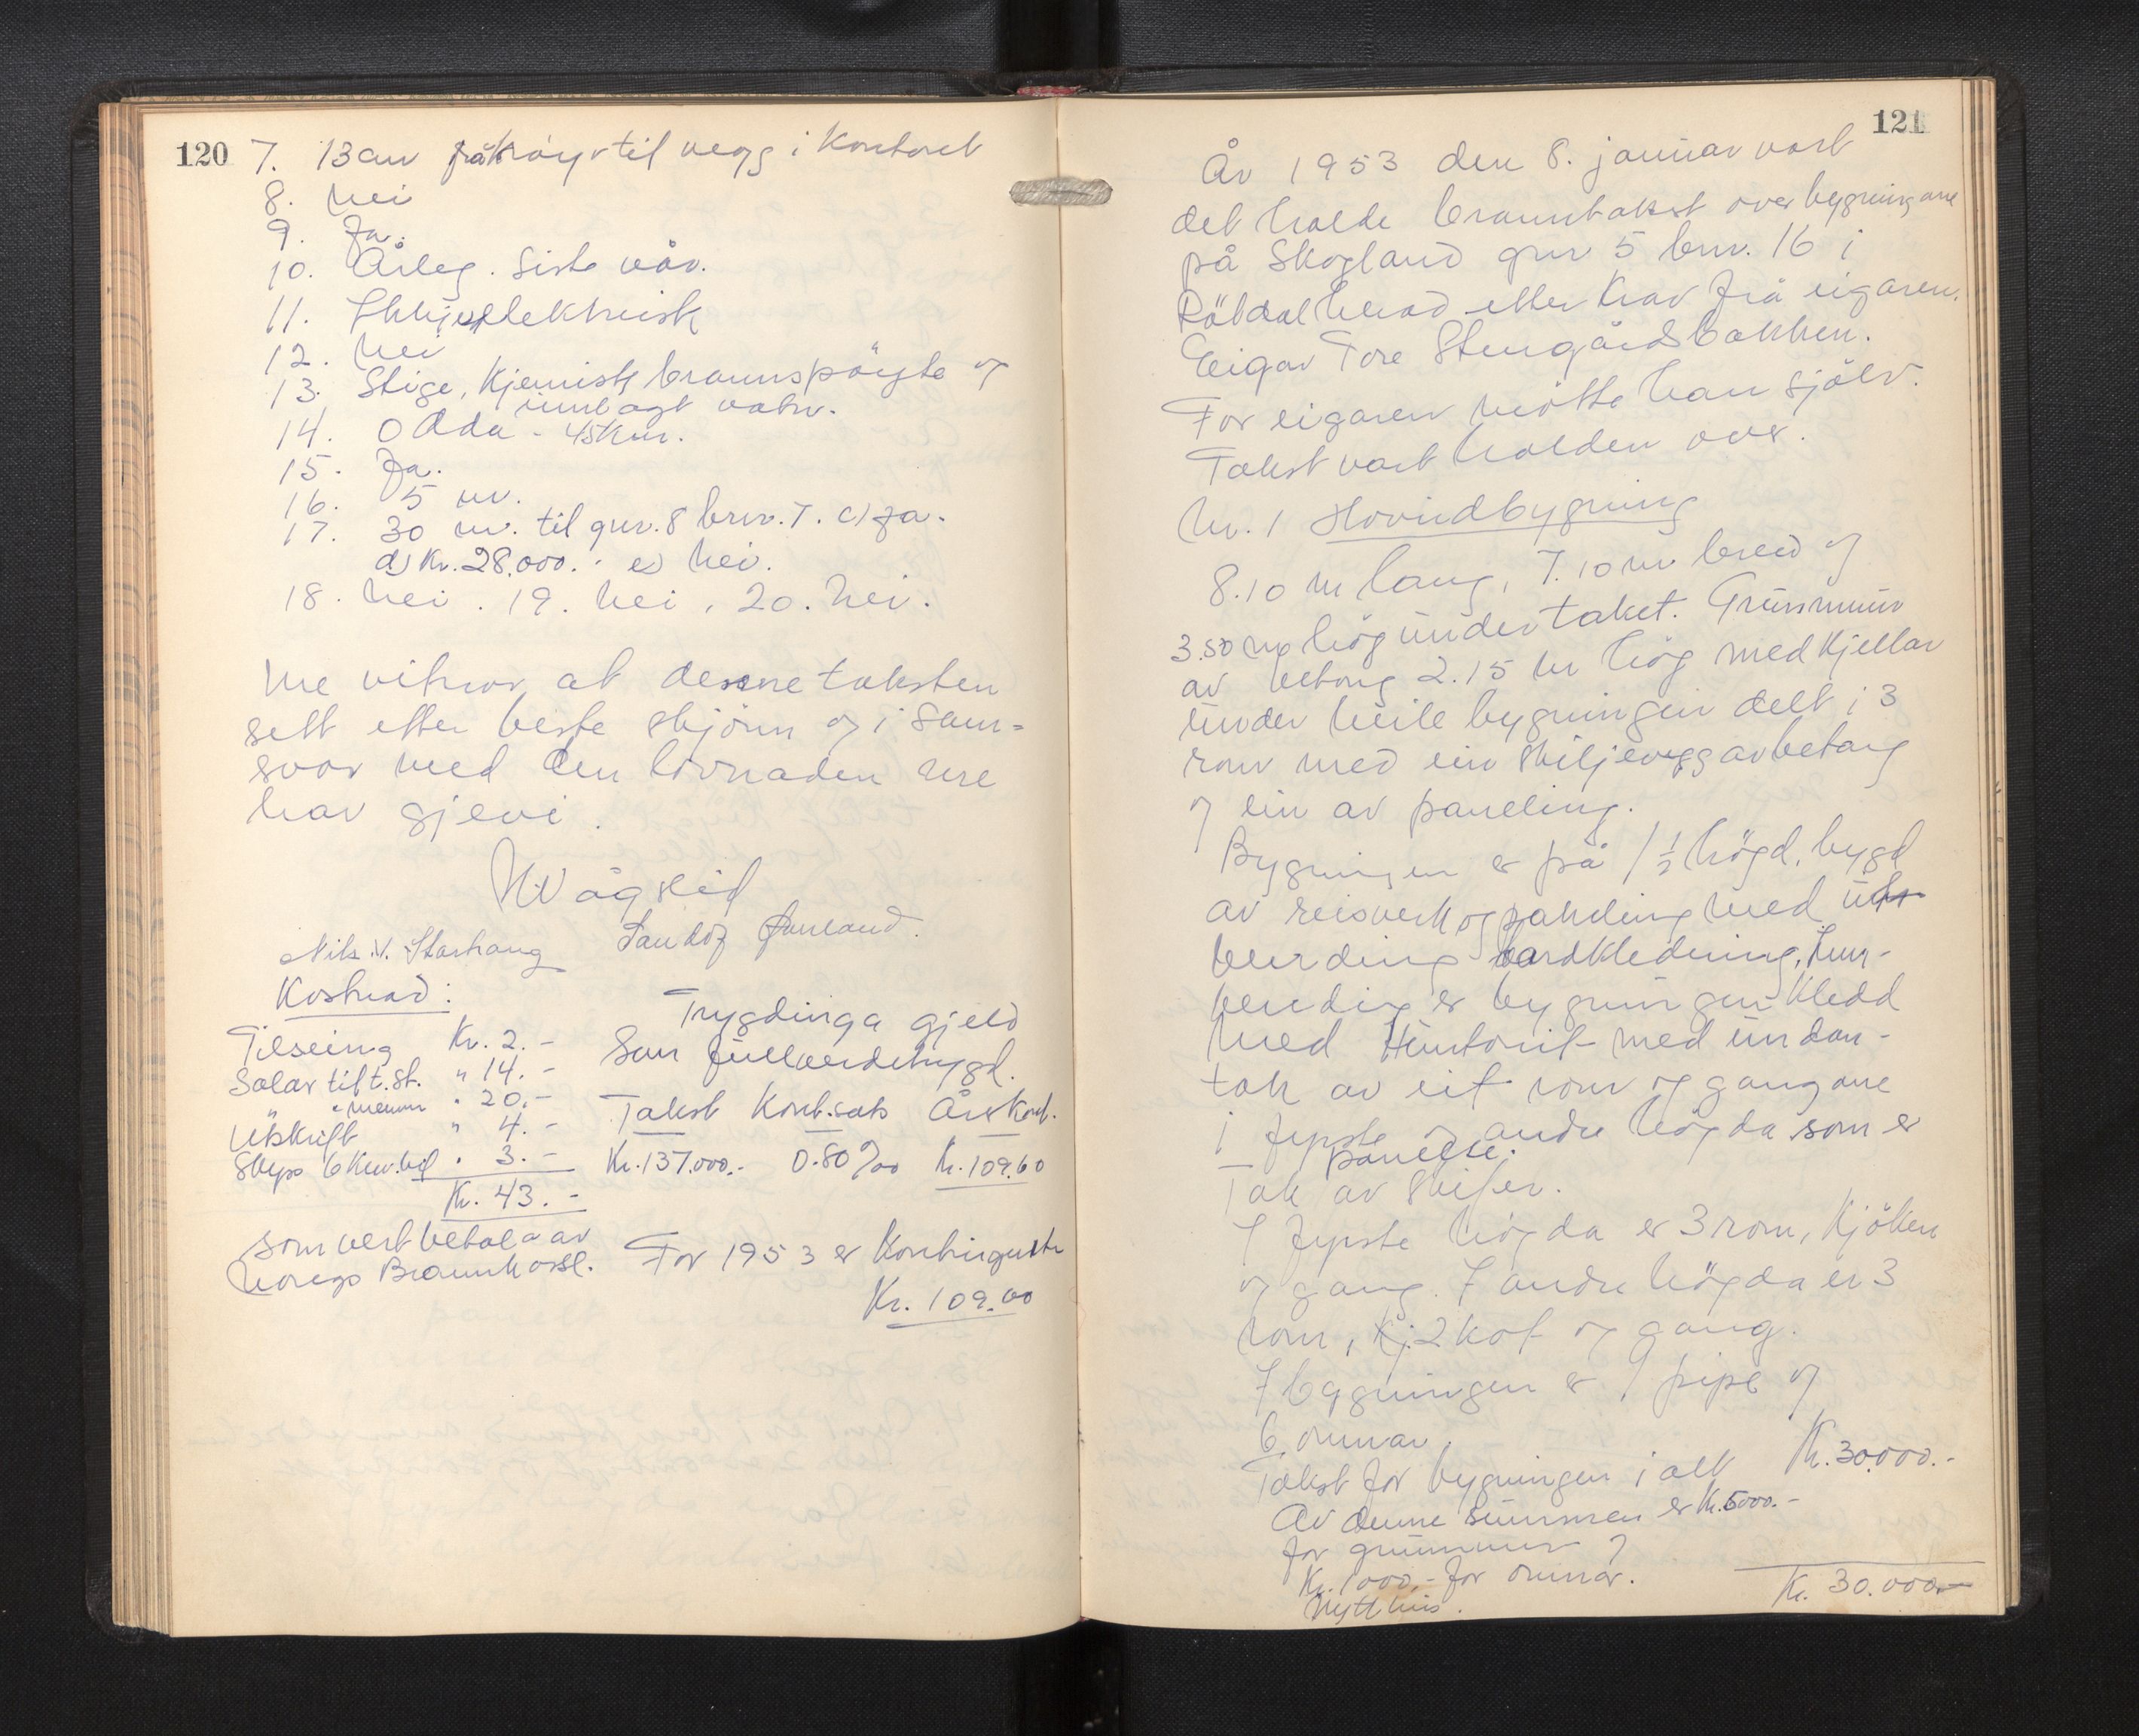 120
7. 13 cm frå röyr til vegg i Kontoret
8. Nei
9. Ja.
10. Årleg. Siste vår.
11. elektrisk
12. Nei
13. Stige, Kjemisk brannspöyte og
innlagt vatn.
14. Odda - 45 km.
15. Ja.
16. 5 m.
17. 30 m. til gnr. 8 brnr. 7. c) Ja.
d) Kr. 28.000.- e) Nei.
18. Nei. 19. Nei. 20. Nei.
Me vitnar at denne taksten
sett etter beste skjönn og i sam-
svar med den lovnaden me
har gjevi.
Vågslid
Nils V. Starhaug
Kostnad:
Tilseing Kr. 2.-
Salar til t.st. " 14.-
" " menn " 20.-
Utskrift " 4.-
Skyss 6 Km. bil " 3.-
Kr. 43.-
som vert betala av
Noregs Brannkasse.
Trygdinga gjeld
Som fullverdetrygd.
Takst Kont.sats Årskont.
Kr. 137.000.- 0.80 ‰ Kr. 109.60
For 1953 er Kontingenten
Kr. 109.00
121
År 1953 den 8. januar vart
det halde branntakst over bygningane
på Skogland gnr 5 brnr. 16 i
Röldal herad etter krav frå eigaren.
Eigar Tore Stengårdsbakken.
For eigaren mötte han sjölv.
Takst vart halden over.
Nr. 1 Hovudbygning
8.10 m lang, 7.10 m breid og
3.50 m hög under taket. Grunnmur
av betong 2.15 m hög med Kjellar
under heile bygningen delt i 3
rom med ein skiljevegg av betong
og ein av paneling.
Bygningen er på 1 1/2 högd, bygd
av reisverk og paneling med ut-
vending bordkledning. Inn-
vendig er bygningen kledd
med Huntonit med undan-
tak av eit rom og gangane
i fyrste og andre högda som er
panelte.
Tak av skifer.
I fyrste högda er 3 rom, Kjöken
og gang. I andre högda er 3
rom, Kj. 2 kot og gang.
I bygningen er 1 pipe og
6 omnar.
Takst for bygningen i alt Kr. 30.000.-
Av denne summen er Kr. 5000.-
for grunnmur og
Kr. 1000.- for omnar.
Nytt hus.
Kr. 30.000.-